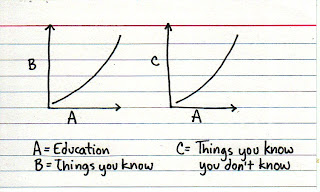 B
A
C
A
A = Education
B = Things you know
C = Things you know
you don't know